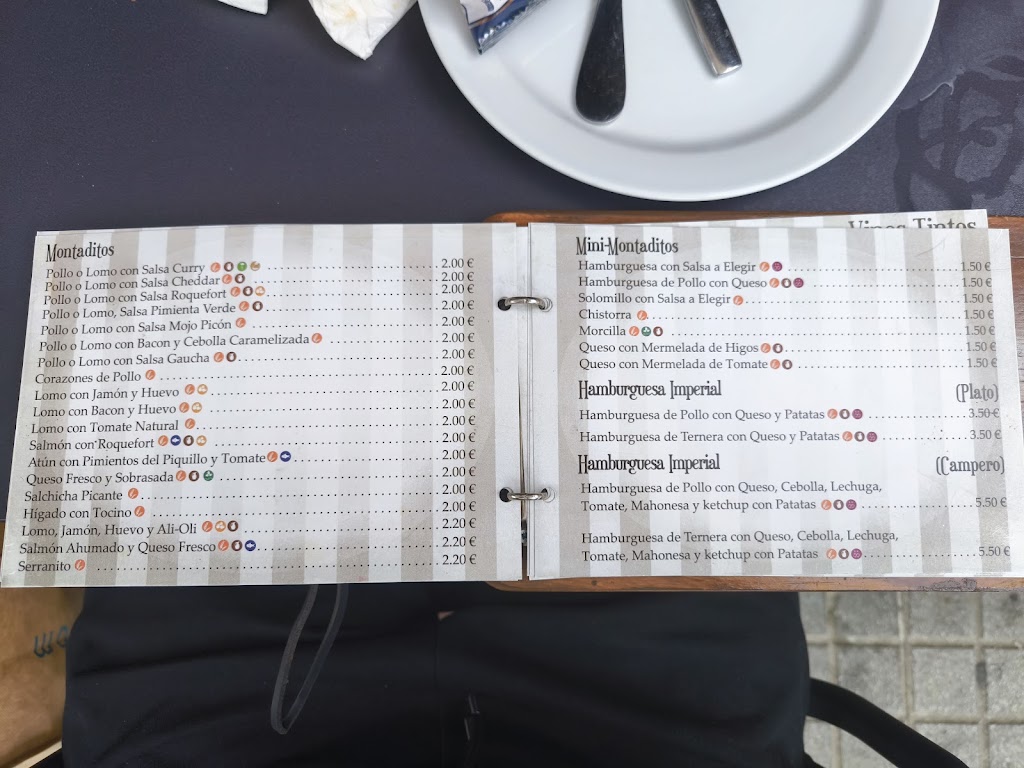 Montaditos
Pollo o Lomo con Salsa Curry 2.00 €
Pollo o Lomo con Salsa Cheddar 2.00 €
Pollo o Lomo con Salsa Roquefort 2.00 €
Pollo o Lomo, Salsa Pimienta Verde 2.00 €
Pollo o Lomo con Salsa Mojo Picón 2.00 €
Pollo o Lomo con Bacon y Cebolla Caramelizada 2.00 €
Pollo o Lomo con Salsa Gaucha 2.00 €
Corazones de Pollo 2.00 €
Lomo con Jamón y Huevo 2.00 €
Lomo con Bacon y Huevo 2.00 €
Lomo con Tomate Natural 2.00 €
Salmón con Roquefort 2.00 €
Atún con Pimientos del Piquillo y Tomate 2.00 €
Queso Fresco y Sobrasada 2.00 €
Salchicha Picante 2.00 €
Hígado con Tocino 2.00 €
Lomo, Jamón, Huevo y Ali-Oli 2.20 €
Salmón Ahumado y Queso Fresco 2.20 €
Serranito 2.20 €
Vinos Tintos
Mini-Montaditos
Hamburguesa con Salsa a Elegir 1.50 €
Hamburguesa de Pollo con Queso 1.50 €
Solomillo con Salsa a Elegir 1.50 €
Chistorra 1.50 €
Morcilla 1.50 €
Queso con Mermelada de Higos 1.50 €
Queso con Mermelada de Tomate 1.50 €
Hamburguesa Imperial (Plato)
Hamburguesa de Pollo con Queso y Patatas 3.50 €
Hamburguesa de Ternera con Queso y Patatas 3.50 €
Hamburguesa Imperial (Campero)
Hamburguesa de Pollo con Queso, Cebolla, Lechuga,
Tomate, Mahonesa y ketchup con Patatas 5.50 €
Hamburguesa de Ternera con Queso, Cebolla, Lechuga,
Tomate, Mahonesa y ketchup con Patatas 5.50 €